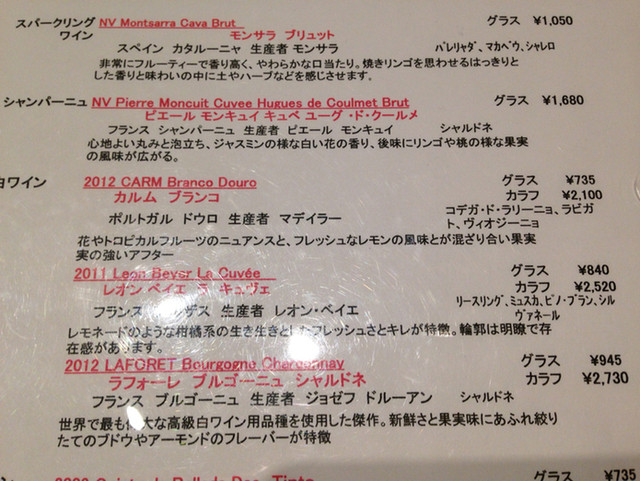 スパークリング NV Montsarra Cava Brut グラス ¥1,050
ワイン モンサラ ブリュット
スペイン カタルーニャ 生産者 モンサラ パレリャダ、マカベウ、シャレロ
非常にフルーティーで香り高く、やわらかな口当たり。焼きリンゴを思わせるはっきりと
した香りと味わいの中に土やハーブなどを感じさせます。
シャンパーニュ NV Pierre Moncuit Cuvee Hugues de Coulmet Brut グラス ¥1,680
ピエール モンキュイ キュベ ユーグ・ド・クールメ
フランス シャンパーニュ 生産者 ピエール モンキュイ シャルドネ
心地よい丸みと泡立ち、ジャスミンの様な白い花の香り、後味にリンゴや桃の様な果実
の風味が広がる。
白ワイン 2012 CARM Branco Douro グラス ¥735
カルム ブランコ カラフ ¥2,100
ポルトガル ドウロ 生産者 マデイラー コデガ・ド・ラリーニョ、ラビガ
ト、ヴィオジーニョ
花やトロピカルフルーツのニュアンスと、フレッシュなレモンの風味とが混ざり合い果実
実の強いアフター
2011 Leon Beyer La Cuvée グラス ¥840
レオン ベイエ ラ キュヴェ カラフ ¥2,520
フランス ルザス 生産者 レオン・ベイエ リースリング、ミュスカ、ピノ・ブラン、シル
ヴァネール
レモネードのような柑橘系の生き生きとしたフレッシュさとキレが特徴。輪郭は明瞭で存
在感があります。
2012 LAFORET Bourgogne Chardonnay グラス ¥945
ラフォーレ ブルゴーニュ シャルドネ カラフ ¥2,730
フランス ブルゴーニュ 生産者 ジョゼフ ドルーアン シャルドネ
世界で最も偉大な高級白ワイン用品種を使用した傑作。新鮮さと果実味にあふれ絞り
たてのブドウやアーモンドのフレーバーが特徴
グラス ¥735